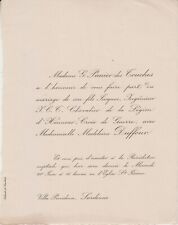 Madame G. Panier des Touches
a l'honneur de vous faire part du
mariage de son fils Jacques, Ingénieur
I.C.C. Chevalier de la Légion
d'Honneur, Croix de Guerre, avec
Mademoiselle Madeleine Duffour
Et vous prie d'assister à la Bénédiction
nuptiale qui leur sera donnée le Mercredi
20 Juin à 16 heures en l'Eglise St
Villa Sardinia